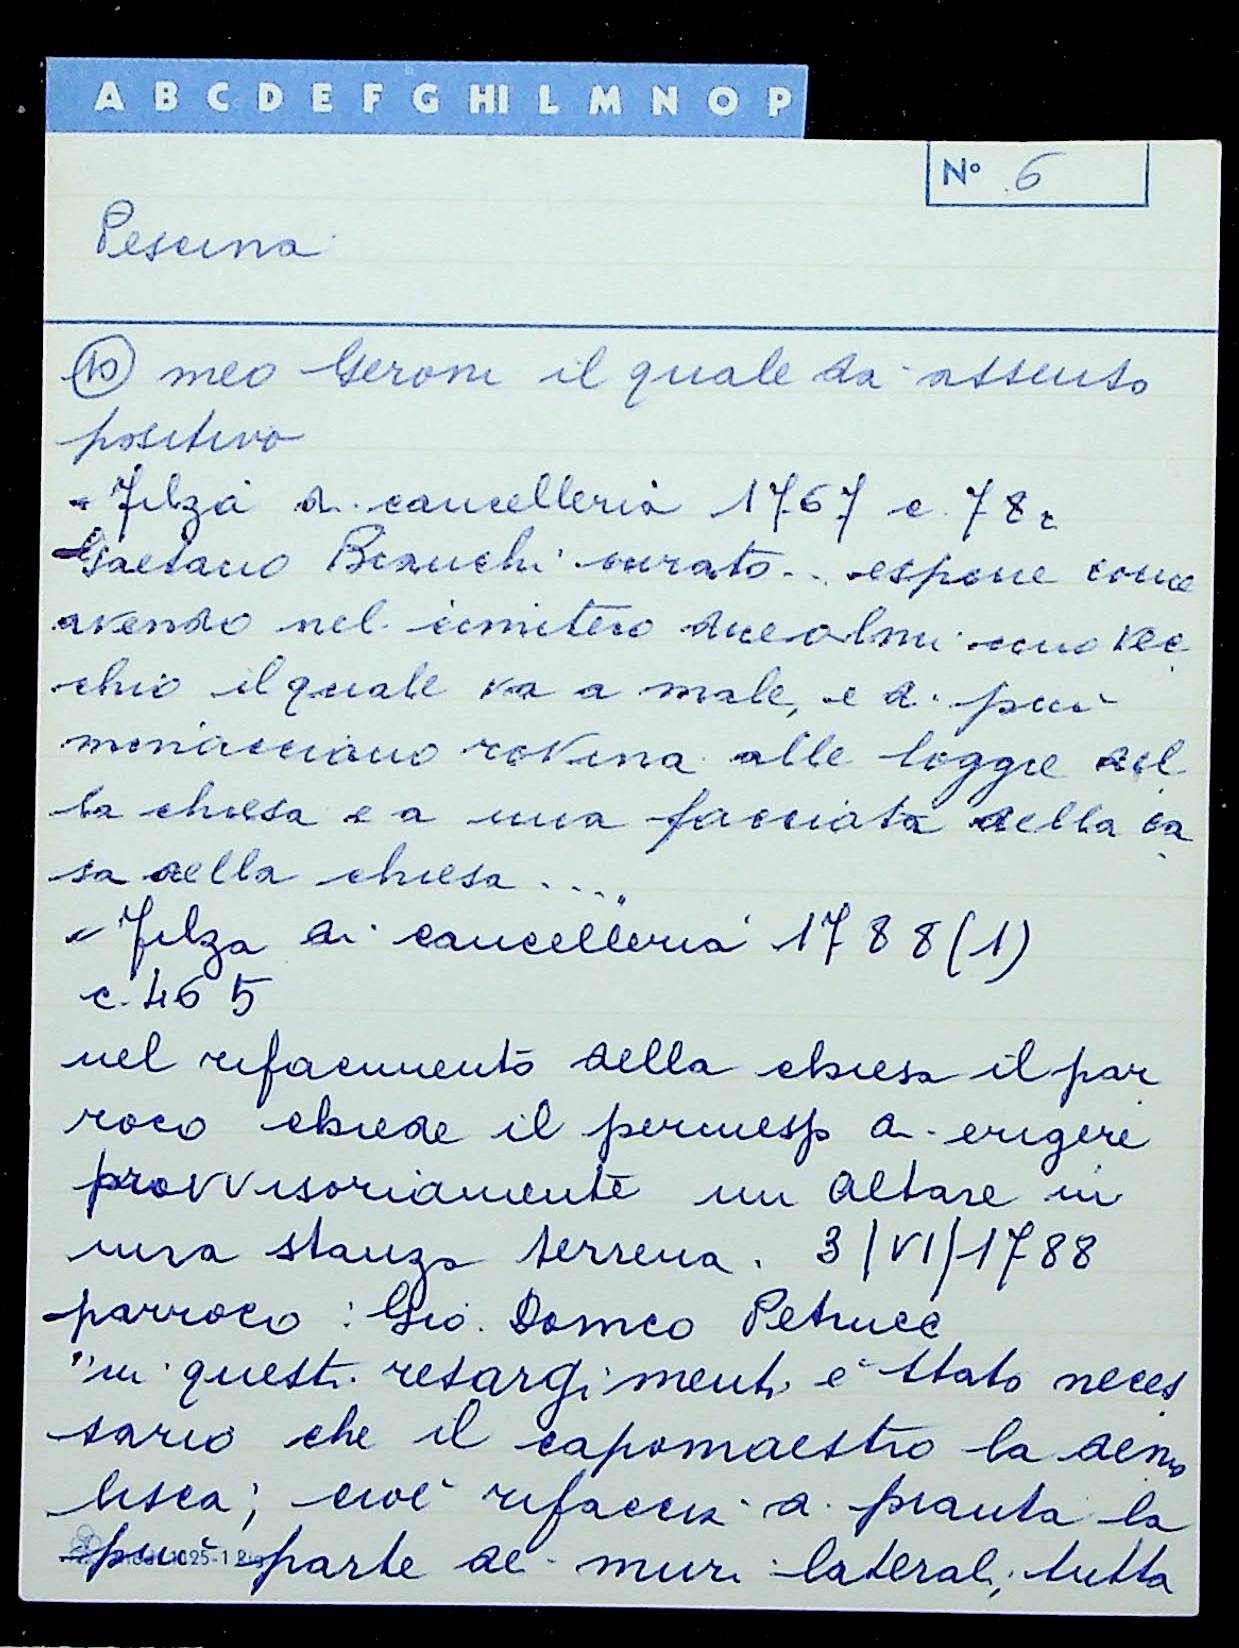 A B C D E F G HI L M N O P
N° 6
Pescina
10 meo Geroni il quale da assenso
positivo
- Filza di cancelleria 1767 c. 78r
Gaetano Bianchi curato... espone come
avendo nel cimitero due olmi uno vec
chio il quale va a male, e di più
minacciano rovina alle loggie del
la chiesa e a una facciata della ca
sa della chiesa ...."
- Filza di cancelleria 1788 (1)
c. 465
nel rifacimento della chiesa il par
roco chiede il permesso di erigere
provvisoriamente un altare in
una stanza terrena. 3/VI/1788
parroco: Gio. Domco Petrucci
"in questi resargimenti è stato neces
sario che il capomaestro la demo
lisca; cioè rifaccia a pianta la
più parte dei muri laterali, tutta